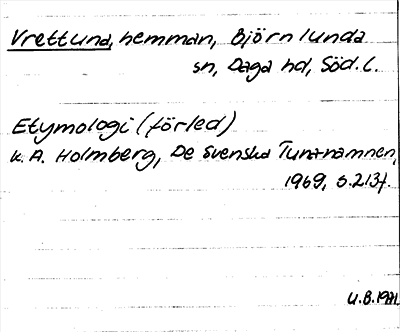 Vrettuna, hemman, Björnlunda
sn, Daga hd, Söd. l.
Etymologi (förled)
K. A. Holmberg, De svenska Tuna-namnen,
1969, s. 213f.
U.B. 1971